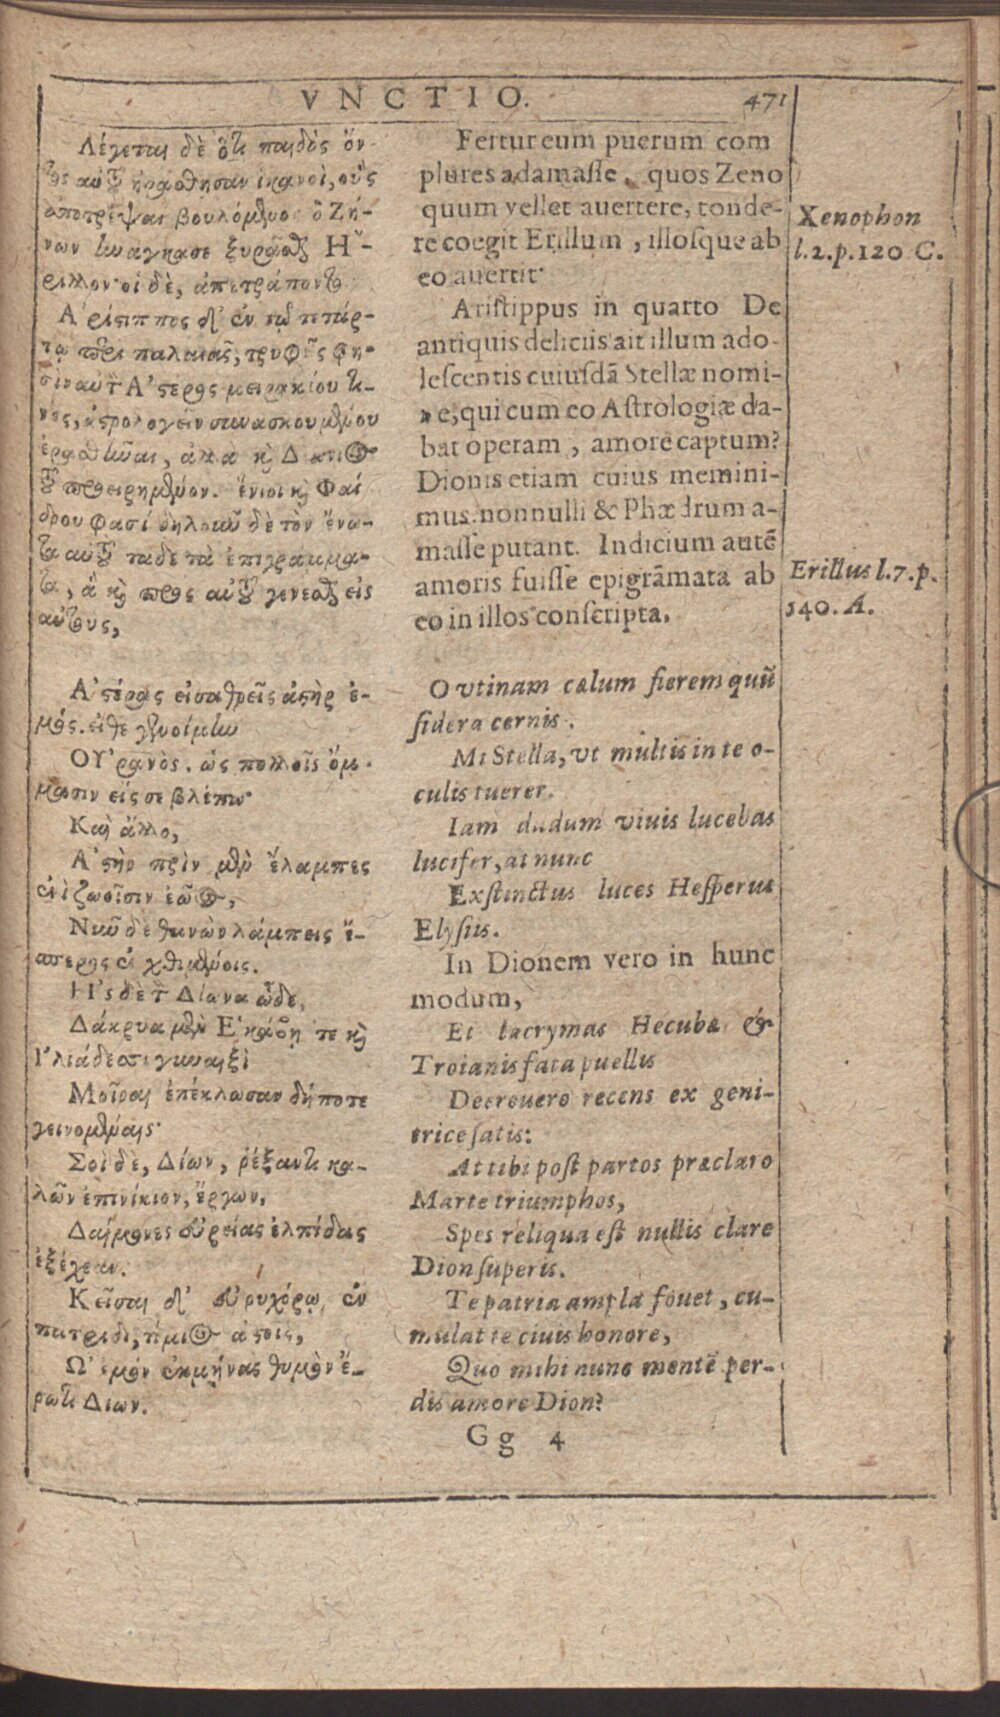 VNCTIO. 471
Λέγεται δὲ ὅτι παιδὸς ὄν-
τος αὐτοῦ ἠράσθησαν ἱκανοὶ, οὓς
ἀποτρέψαι βουλόμενος ὁ Ζή-
νων ἠνάγκασε ξυρᾶσθαι Η῞-
ριλλον· οἱ δὲ, ἀπετράποντο.
Α᾿ρίστιππος δ᾿ ἐν τῷ τετάρ-
τῳ περὶ παλαιᾶς, τρυφῆς φη-
σὶν αὐτὸν Α᾿στέρος μειρακίου τι-
νὸς, ἀστρολογεῖν συνασκουμένου
ἐρασθῆναι, ἀλλα καὶ Δίωνος
τοῦ προειρημένου. ἔνιοι καὶ Φαί
δρου φασί δηλοῦν δὲ τὸν ἔρω-
τα αὐτοῦ ταδε τὰ ἐπιγράμμα-
τα, ἃ καὶ πρὸς αὐτοῦ γενέσθαι εἰς
αὐτους,
Α᾿στέρας εἰσαθρεῖς ἀστὴρ ἐ-
μός. εἴθε γενοίμην
ΟΥ᾿ρανὸς. ὡς πολλοῖς ὄμ-
μασιν εἰς σε βλέπω·
Καὶ ἄλλο,
Α᾿στὴρ πρὶν μὲν ἔλαμπες
ἐνὶ ζωοῖσιν ἑῶος,
Νῦν δὲ θανὼν λάμπεις ἕ-
σπερος ἐν φθιμένοις.
Εἰς δὲ τὸν Δίωνα ὧδε,
Δάκρυα μὲν Ε῾κάβῃ τε καὶ
Ι᾿λιάδεσσι γυναιξὶ
Μοῖραι ἐπέκλωσαν δήποτε
γεινομέναις·
Σοὶ δὲ, Δίων, ῥέξαντι κα-
λῶν ἐπινίκιον, ἔργων,
Δαίμονες εὐρείας ἐλπίδας
ἐξέχεαν.
Κεῖσαι δ᾿ εὐρυχόρῳ ἐν
πατρίδι, τίμιος ἀστοῖς,
Ω᾿ ἐμὸν ἐκμήνας θυμὸν ἔ-
ρωτι Δίων.
Fertur eum puerum com
plures adamasse, quos Zeno
quum vellet auertere, tonde-
re coegit Erillum, illosque ab
eo auertit·
Aristippus in quarto De
antiquis deliciis ait illum ado-
lescentis cuiusdã Stellæ nomi-
ne, qui cum eo Astrologiæ da-
bat operam, amore captum?
Dionis etiam cuius memini-
mus. nonnulli & Phædrum a-
masse putant. Indicium autẽ
amoris fuisse epigrãmata ab
eo in illos conscripta,
O vtinam cælum fierem quũ
sidera cernis.
Mi Stella, vt multis in te o-
culis tuerer.
Iam dudum viuis lucebas
lucifer, at nunc
Exstinctus luces Hesperus
Elysiis.
In Dionem vero in hunc
modum,
Et lacrymas Hecubæ &
Troianis fata puellis
Decreuere recens ex geni-
trice satis:
At tibi post partos præclaro
Marte triumphos,
Spes reliqua est nullis clare
Dion superis.
Te patria ampla fouet, cu-
mulat te ciuis honore,
Quo mihi nunc mentẽ per-
dis amore Dion?
Gg 4
Xenophon
l.2.p.120 C.
Erillus l.7.p.
540. A.